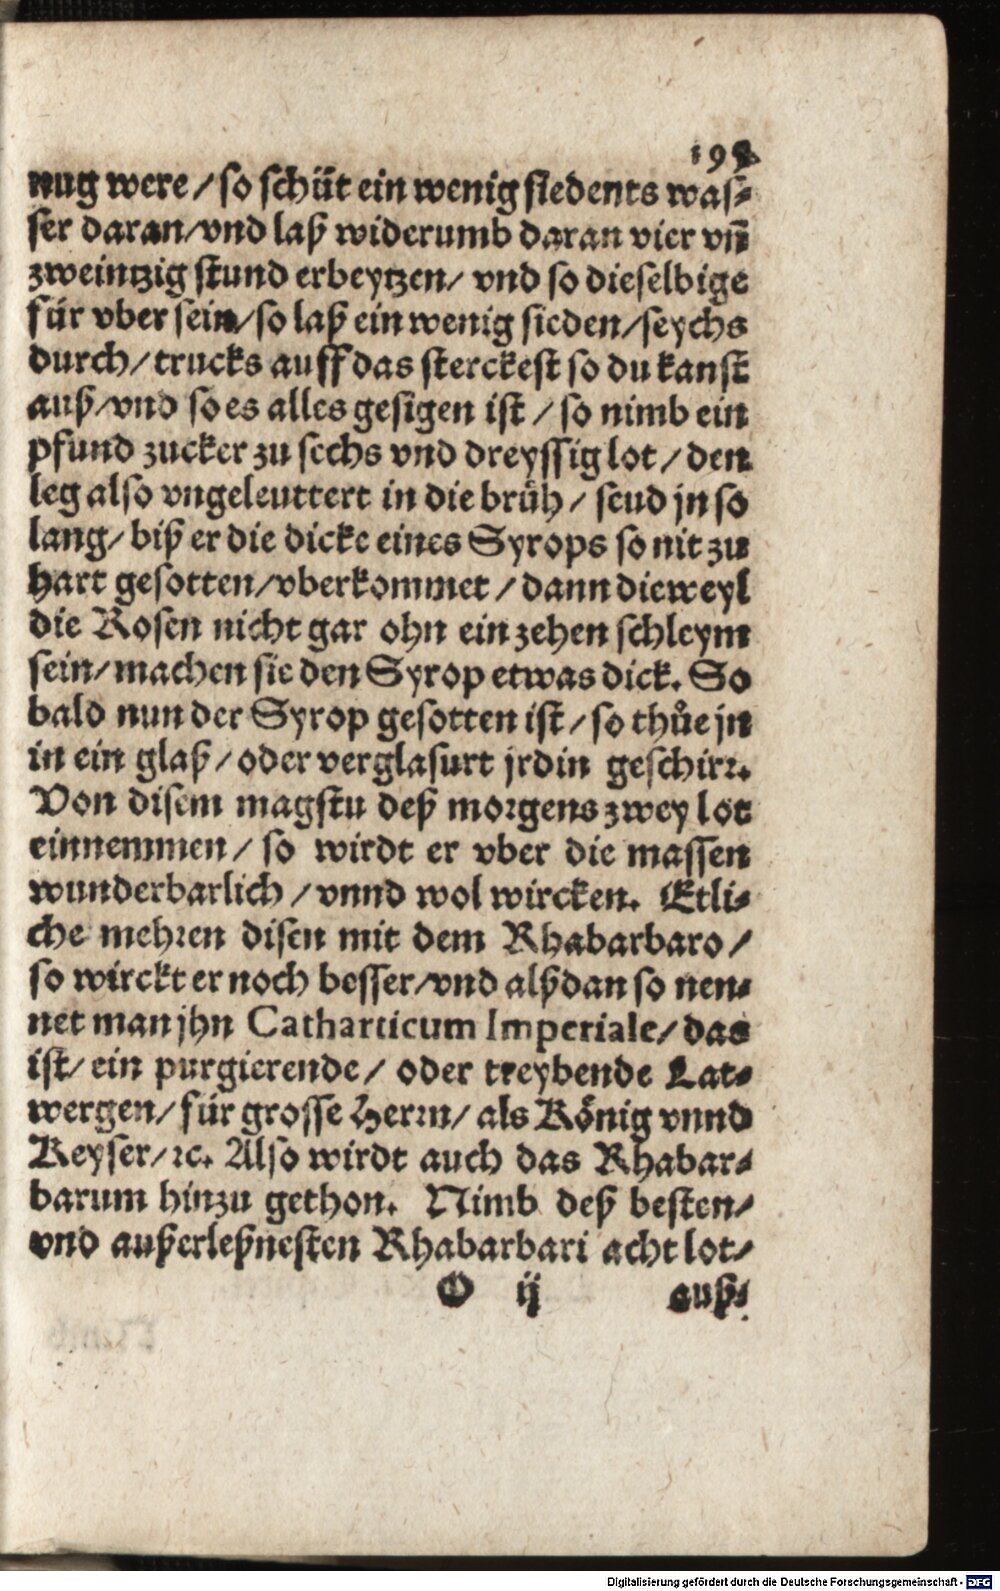 198
nug were / so schüt ein wenig siedents was⸗
ser daran/vnd laß widerumb daran vier vñ
zweintzig stund erbeytzen/ vnd so dieselbige
für vber sein/so laß ein wenig sieden/seychs
durch/trucks auff das sterckest so du kanst
auß/vnd so es alles gesigen ist / so nimb ein
pfund zucker zu sechs vnd dreyssig lot / den
leg also vngeleuttert in die brüh / seud jn so
lang/ biß er die dicke eines Syrops so nit zu
hart gesotten/vberkommet / dann dieweyl
die Rosen nicht gar ohn ein zehen schleym
sein/machen sie den Syrop etwas dick. So
bald nun der Syrop gesotten ist / so thůe jn
in ein glaß / oder verglasurt jrdin geschirr.
Von disem magstu deß morgens zwey lot
einnemmen / so wirdt er vber die massen
wunderbarlich / vnnd wol wircken. Etli⸗
che mehren disen mit dem Rhabarbaro /
so wirckt er noch besser/vnd alßdan so nen⸗
net man jhn Catharticum Imperiale/ das
ist/ ein purgierende / oder treybende Lat⸗
wergen/ für grosse Herrn/ als König vnnd
Keyser/ꝛc. Also wirdt auch das Rhabar⸗
barum hinzu gethon. Nimb deß besten/
vnd außerleßnesten Rhabarbari acht lot/
O ij auß⸗
Digitalisierung gefördert durch die Deutsche Forschungsgemeinschaft - DFG